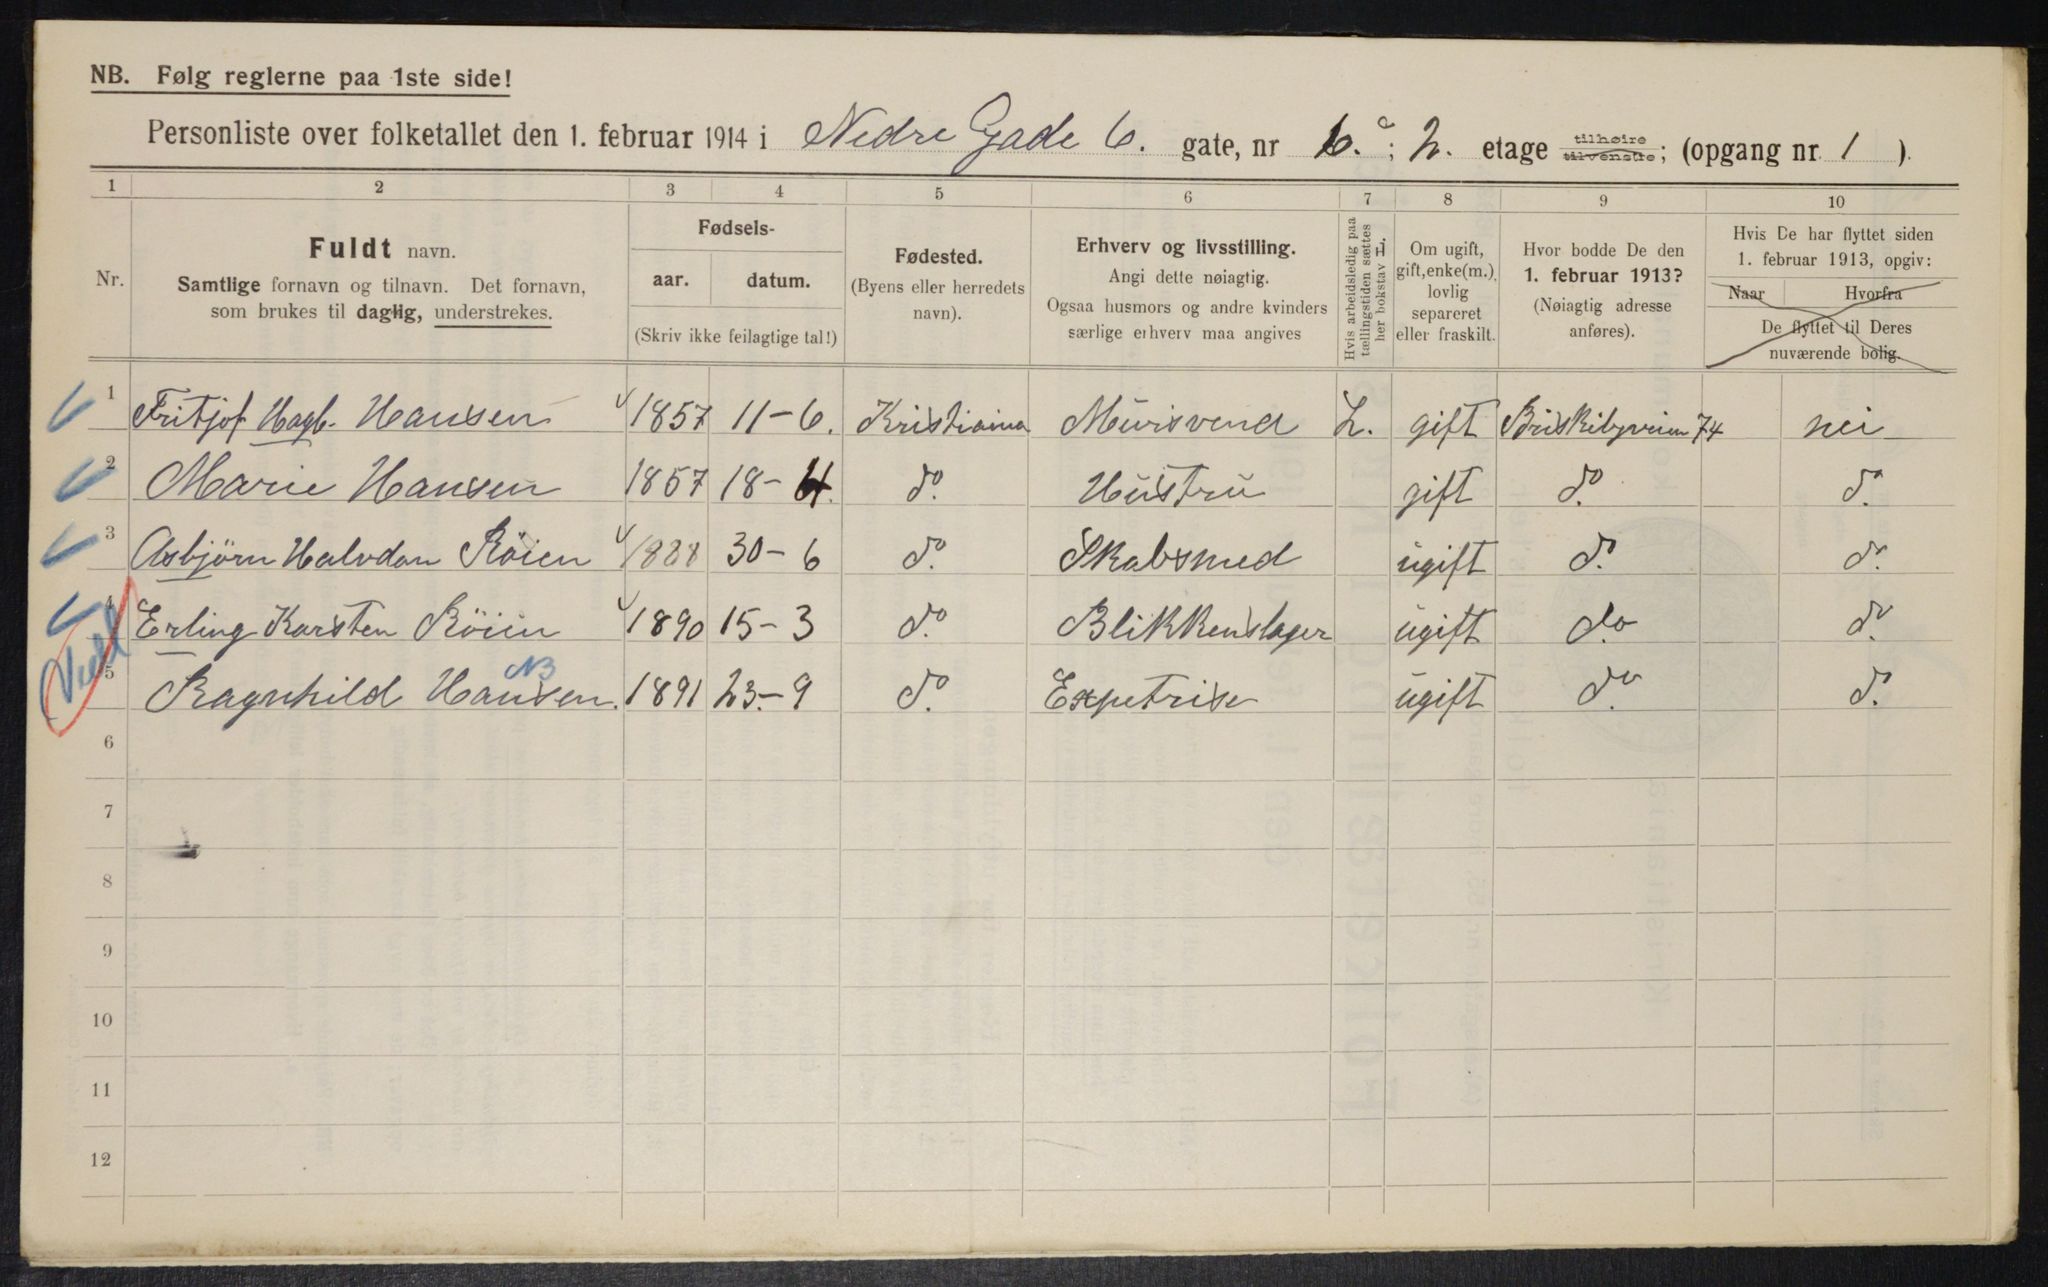 NB. Følg reglerne paa 1ste side!
Personliste over folketallet den 1. februar 1914 i Nedre Gade 6. gate, nr 6.c; 2. etage tilhøire tilvenstre; (opgang nr. 1 ).
1 2 3 4 5 6 7 8 9 10
Nr.
Fuldt navn.
Samtlige fornavn og tilnavn. Det fornavn,
som brukes til daglig, understrekes.
Fødsels-
aar. datum.
(Skriv ikke feilagtige tal!)
Fødested.
(Byens eller herredets
navn).
Erhverv og livsstilling.
Angi dette nøiagtig.
Ogsaa husmors og andre kvinders
særlige erhverv maa angives
Hvis arbeidsledig paa
tællingstiden sættes
her bokstav L.
Om ugift,
gift, enke(m.),
lovlig
separeret
eller fraskilt.
Hvor bodde De den
1. februar 1913?
(Nøiagtig adresse
anføres).
Hvis De har flyttet siden
1. februar 1913, opgiv:
Naar Hvorfra
De flyttet til Deres
nuværende bolig.
1 Fritjof Hagb. Hansen 1857 11-6. Kristiania Mursvend L. gift Briskibyveien 74 nei
2 Marie Hansen 1857 18-4. do. Hustru gift do. do.
3 Asbjörn Halvdan Röien 1888 30-6 do. Skabsmed ugift do. do.
4 Erling Karsten Röien 1890 15-3 do. Blikkenslager ugift do. do.
NB
5 Ragnhild Hansen. 1891 23.-9 do. Expetrise ugift do. do.
6
7
8
9
10
11
12